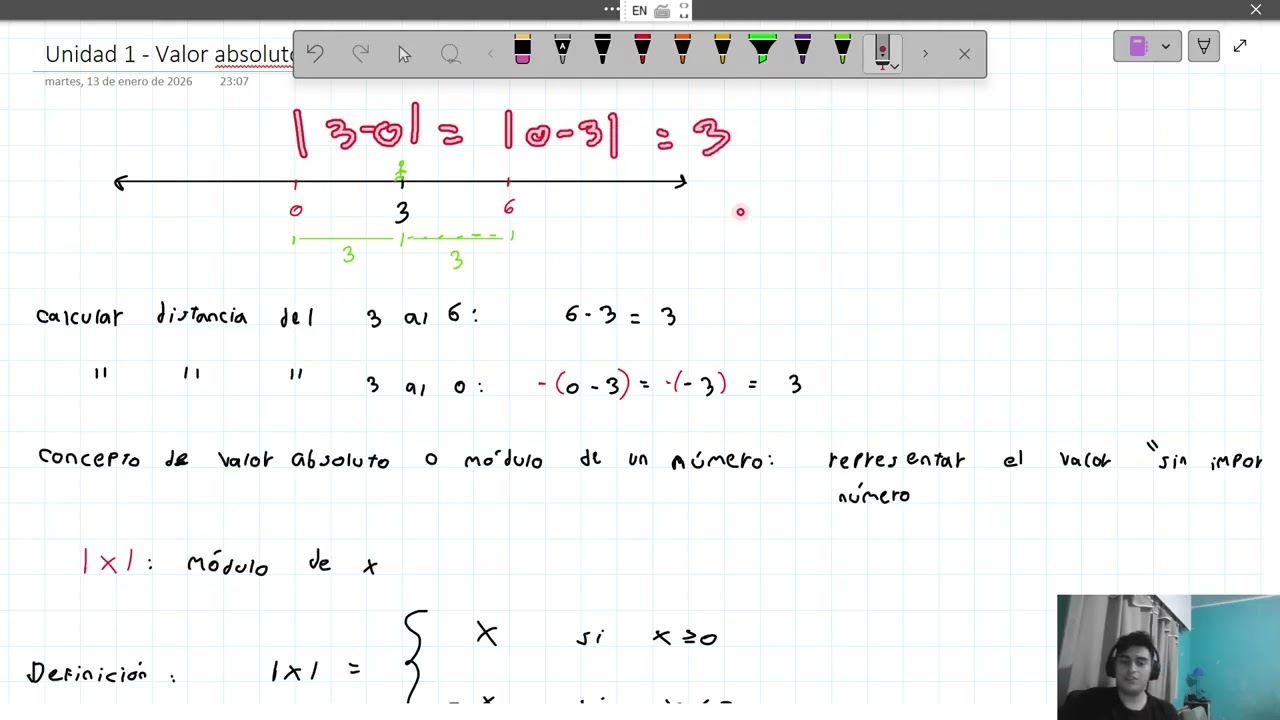 EN
Unidad 1 - Valor absoluto
martes, 13 de enero de 2026 23:07
|3-0| = |0-3| = 3
0 3 6
3 3
calcular distancia del 3 al 6: 6-3 = 3
" " " 3 al 0: -(0-3) = -(-3) = 3
concepto de valor absoluto o módulo de un número: representar el valor "sin impor
número
|x|: módulo de x
x si x≥0
Definición: |x| =